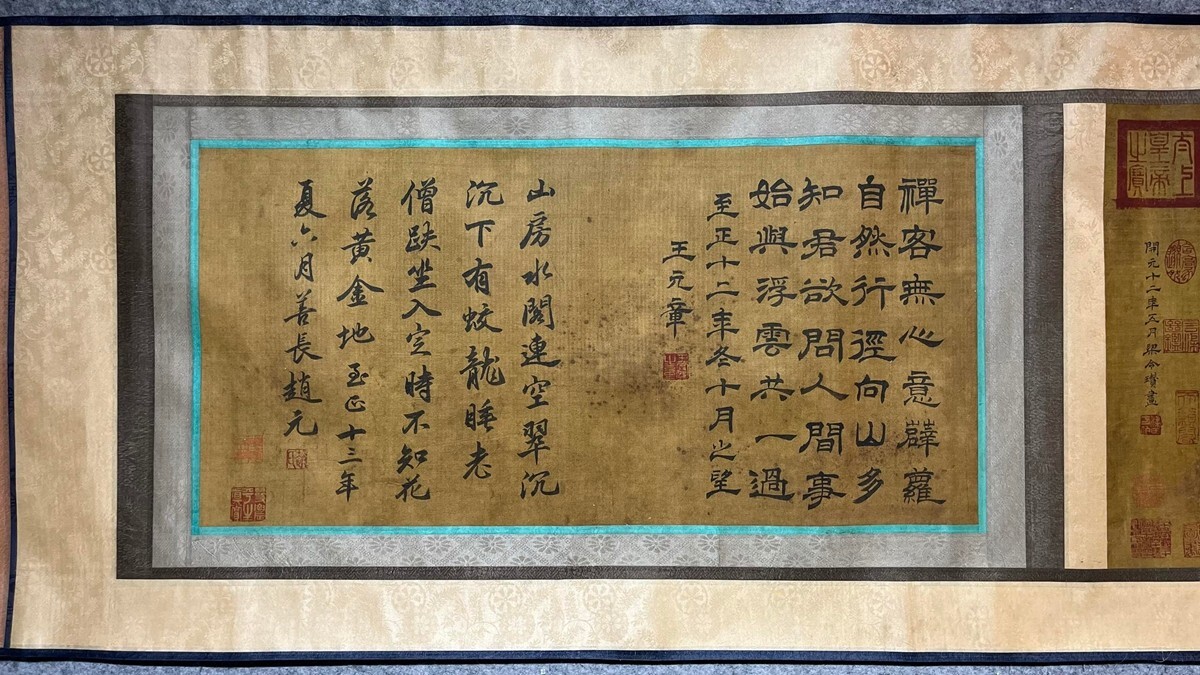 太上
皇帝
之寶
開元十二年五月梁令瓚畫
禪客無心意薜蘿
自然行徑向山多
知君欲問人間事
始與浮雲共一過
至正十二年冬十月之望
王元章
山房水閣連空翠沉
沉下有蛟龍睡老
僧趺坐入定時不知花
落黃金地至正十三年
夏六月善長趙元